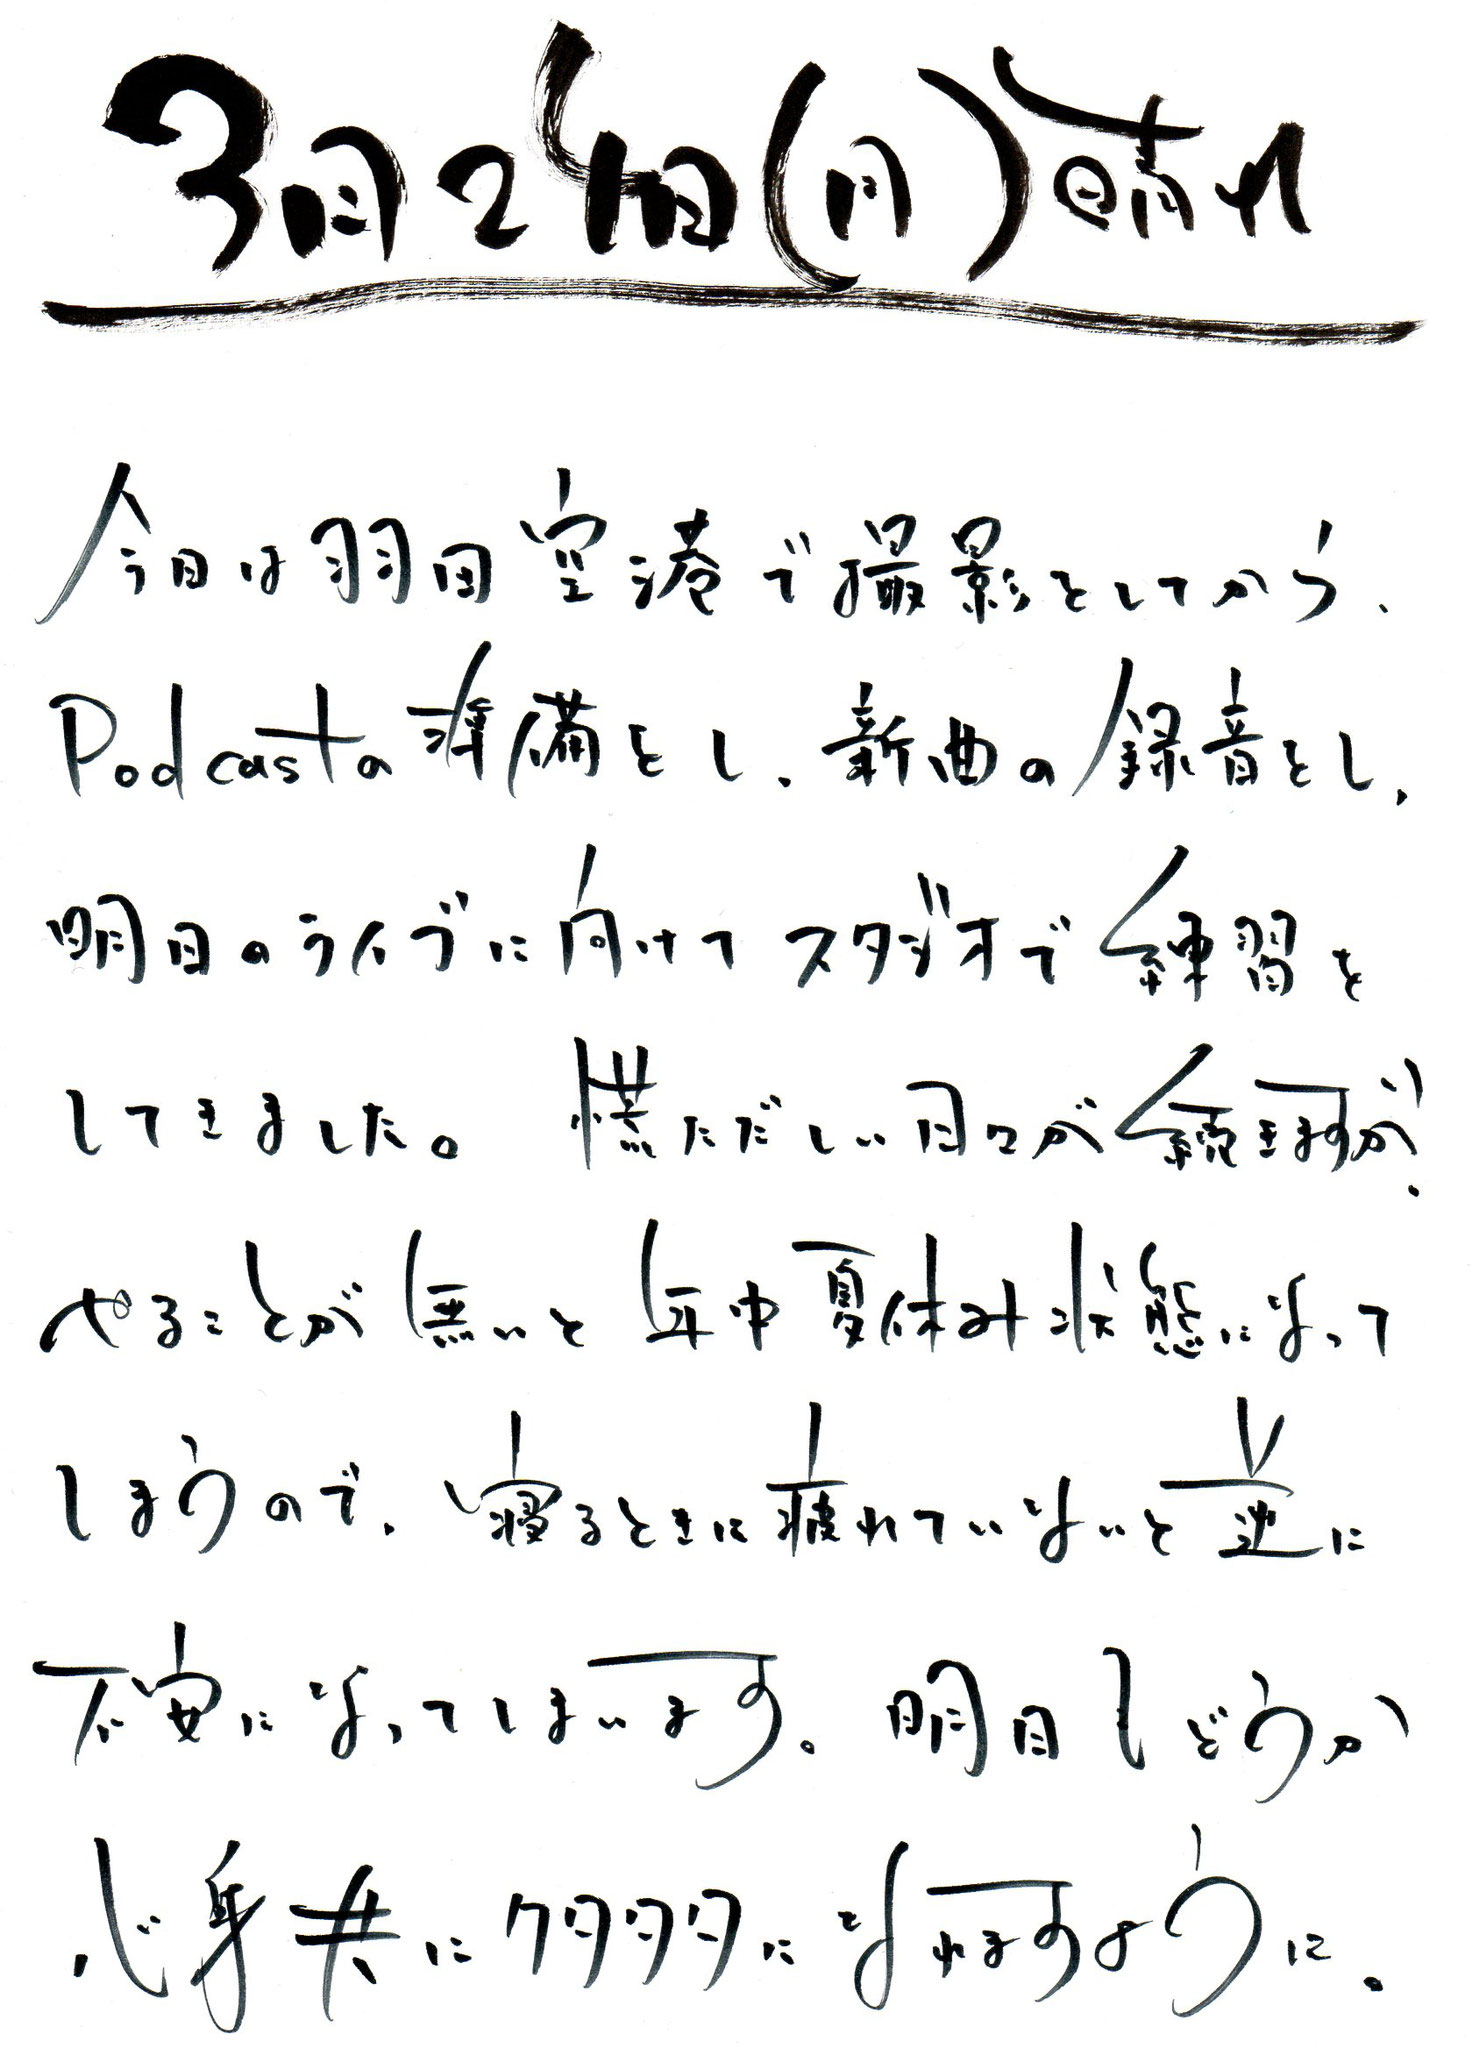 3月24日(月)晴れ
今日は羽田空港で撮影をしてから、
Podcastの準備をし、新曲の録音をし、
明日のライブに向けてスタジオで練習を
してきました。 慌ただしい日々が続きますが、
やることが無いと年中夏休み状態になって
しまうので、寝るときに疲れていないと逆に
不安になってしまいます。明日もどうか
心身共にクタクタになれますように。